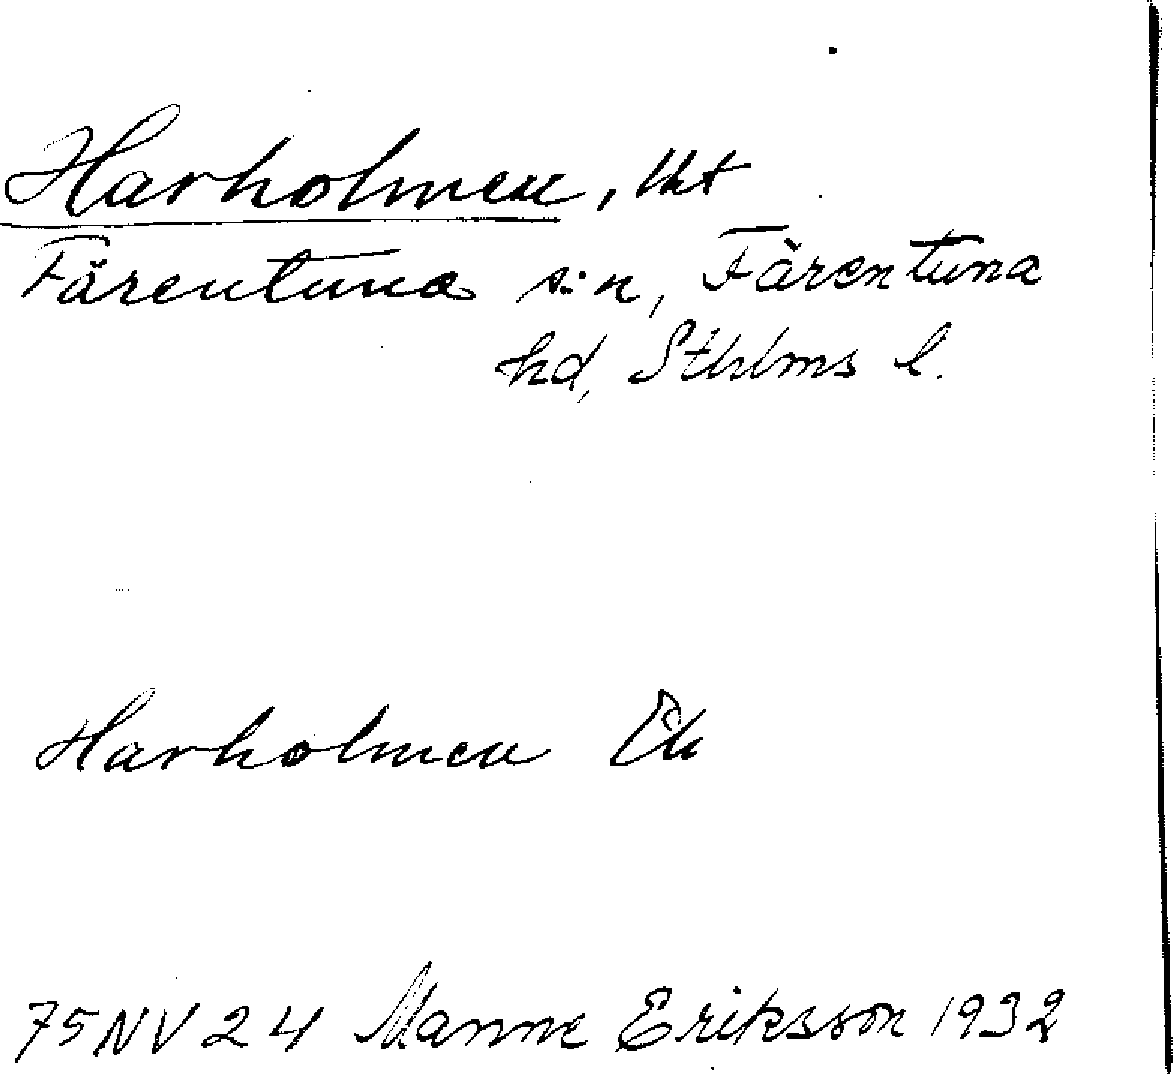 Harholmen,
Färentuna s:n, Färentuna
hd, Sthlms l.
Harholmen Ek
75NV24 Manne Eriksson 1932